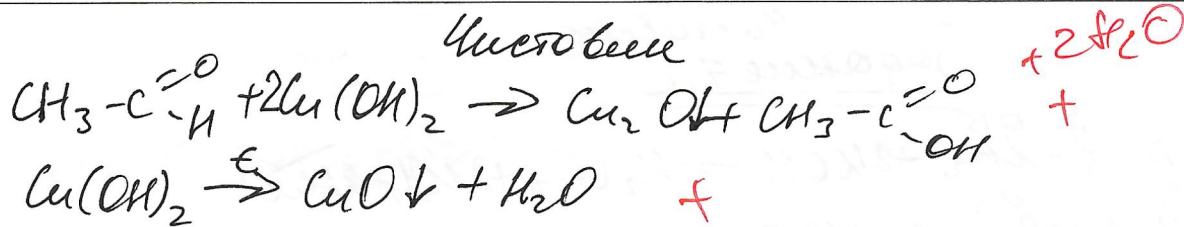 Чистовик
+2H₂O
CH₃-C(=O)-H +2Cu(OH)₂ → Cu₂O↓+ CH₃-C(=O)-OH +
Cu(OH)₂ –t→ CuO↓ + H₂O +